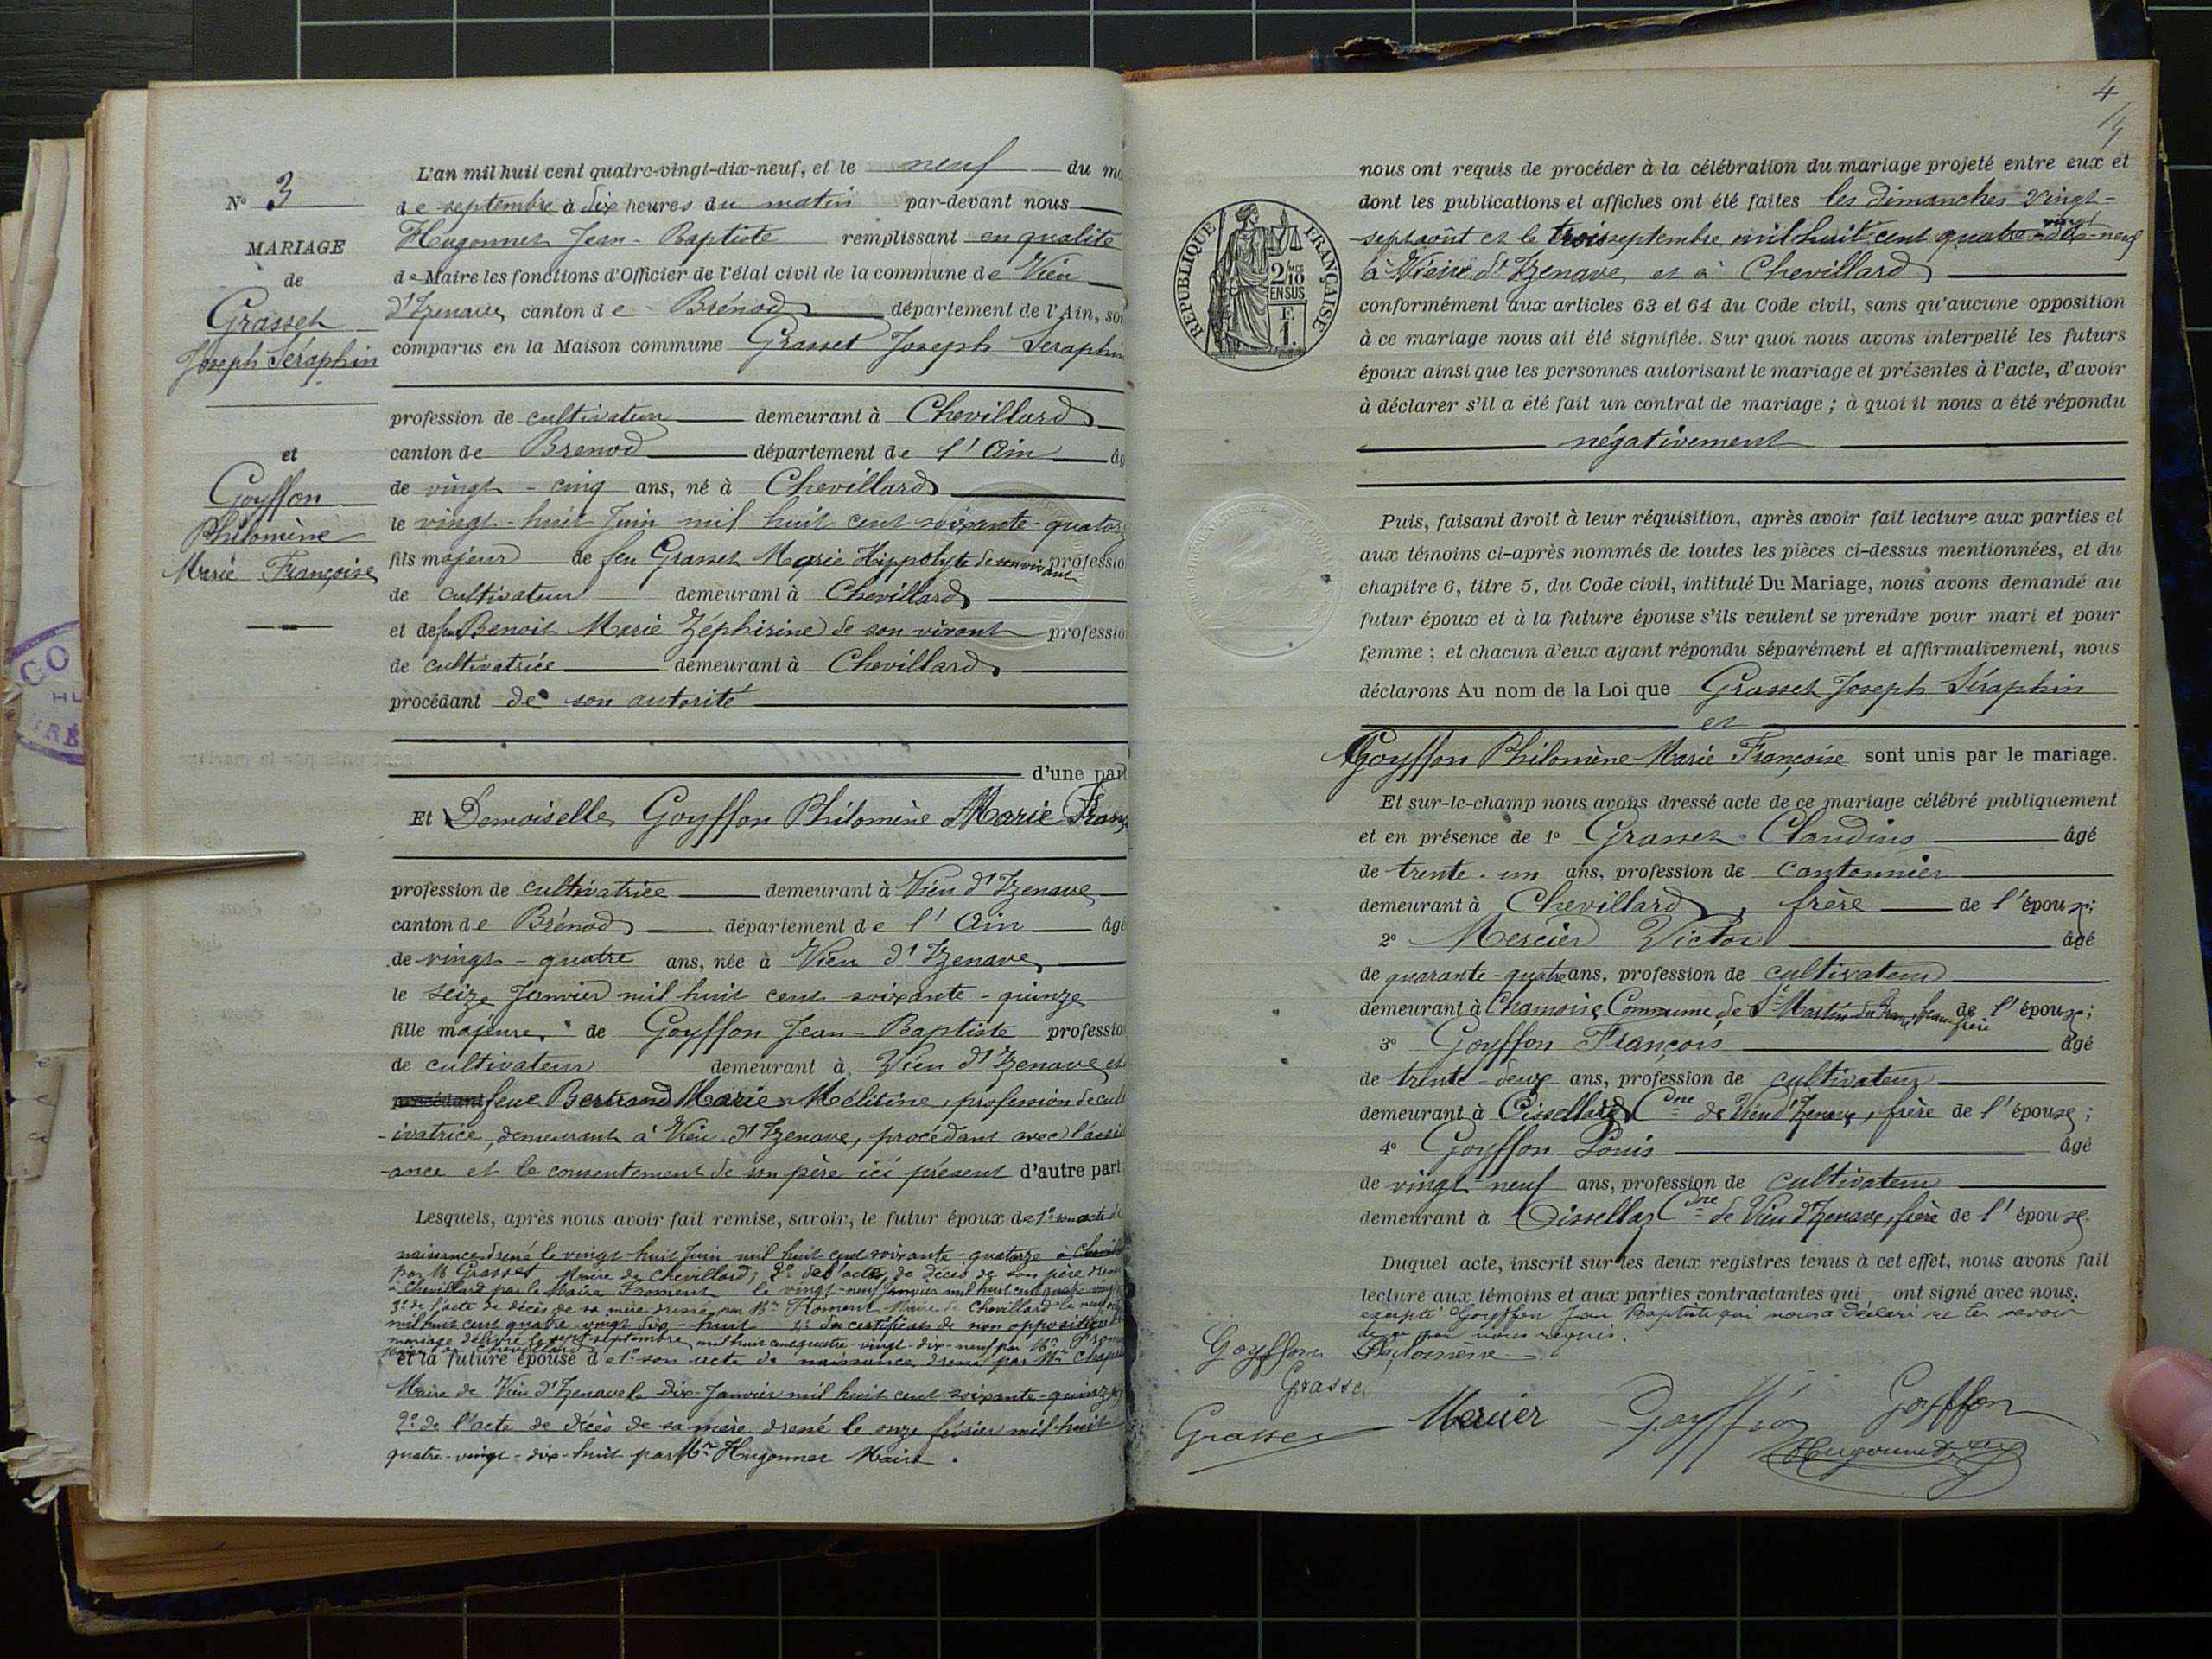 N° 3
MARIAGE
de
Grasset
Joseph Séraphin
et
Goyffon
Philomène
Marie Françoise
L'an mil huit cent quatre-vingt-dix-neuf, et le neuf du m
de septembre à dix heures du matin par-devant nous
Hugonnet Jean-Baptiste remplissant en qualité
de Maire les fonctions d'Officier de l'état civil de la commune de Vieu
d'Izenave canton de Brénod département de l'Ain, so
comparus en la Maison commune Grasset Joseph Séraphin
profession de cultivateur demeurant à Chevillard
canton de Brenod département de l'Ain âg
de vingt-cinq ans, né à Chevillard
le vingt-huit Juin mil huit cent soixante-quator
fils majeur de feu Grasset Marie Hippolyte de son vivant professio
de cultivateur demeurant à Chevillard
et de feu Benoit Marie Zéphirine de son vivant professio
de cultivatrice demeurant à Chevillard
procédant de son autorité
d'une part
Et Demoiselle Goyffon Philomène Marie Franç
profession de cultivatrice demeurant à Vieu d'Izenave
canton de Brénod département de l'Ain âgé
de vingt-quatre ans, née à Vieu d'Izenave
le seize Janvier mil huit cent soixante-quinze
fille majeure de Goyffon Jean-Baptiste professio
de cultivateur demeurant à Vieu d'Izenave et
procédant feue Bertrand Marie Mélitine, profession de cult
-ivatrice, demeurant à Vieu d'Izenave, procédant avec l'assis
-ance et le consentement de son père ici présent d'autre part
Lesquels, après nous avoir fait remise, savoir, le futur époux de 1° son acte de
naissance dressé le vingt-huit Juin mil huit cent soixante-quatorze à Chevill
par M Grasset Maire de Chevillard; 2° de l'acte de décès de son père dressé
à Chevillard par le Maire Froment le vingt-neuf Janvier mil huit cent quatre-vingt
3° de l'acte de décès de sa mère dressé par Mr Froment Maire de Chevillard le neuf
mil huit cent quatre-vingt dix-huit 4° du certificat de non opposition
mariage délivré le sept septembre mil huit cent quatre-vingt-dix-neuf par Mr Frome
de Chevillard
et la future épouse d et 1° son acte de naissance dressé par Mr Chapel
Maire de Vieu d'Izenave le dix-Janvier mil huit cent soixante-quinze,
2° de l'acte de décès de sa mère dressé le onze février mil huit
quatre-vingt-dix-huit par Mr Hugonnet Maire.
4
RÉPUBLIQUE FRANÇAISE
2/10
EN SUS
1.
nous ont requis de procéder à la célébration du mariage projeté entre eux et
dont les publications et affiches ont été faites les dimanches vingt-
sept août et le trois septembre mil huit cent quatre-vingt-dix-neuf
à Vieu d'Izenave et à Chevillard
conformément aux articles 63 et 64 du Code civil, sans qu'aucune opposition
à ce mariage nous ait été signifiée. Sur quoi nous avons interpellé les futurs
époux ainsi que les personnes autorisant le mariage et présentes à l'acte, d'avoir
à déclarer s'il a été fait un contrat de mariage ; à quoi il nous a été répondu
négativement
Puis, faisant droit à leur réquisition, après avoir fait lecture aux parties et
aux témoins ci-après nommés de toutes les pièces ci-dessus mentionnées, et du
chapitre 6, titre 5, du Code civil, intitulé Du Mariage, nous avons demandé au
futur époux et à la future épouse s'ils veulent se prendre pour mari et pour
femme ; et chacun d'eux ayant répondu séparément et affirmativement, nous
déclarons Au nom de la Loi que Grasset Joseph Séraphin
et
Goyffon Philomène Marie Françoise sont unis par le mariage.
Et sur-le-champ nous avons dressé acte de ce mariage célébré publiquement
et en présence de 1° Grasset Claudius âgé
de trente-un ans, profession de cantonnier
demeurant à Chevillard, frère de l'époux;
2° Mercier Victor âgé
de quarante-quatre ans, profession de cultivateur
demeurant à Chamoise Commune de St Martin du Frene, beau-frère de l'épouse;
3° Goyffon François âgé
de trente-deux ans, profession de cultivateur
demeurant à Cissellaz Cne de Vieu d'Izenave, frère de l'épouse;
4° Goyffon Louis âgé
de vingt-neuf ans, profession de cultivateur
demeurant à Cissellaz Cne de Vieu d'Izenave, frère de l'épouse.
Duquel acte, inscrit sur les deux registres tenus à cet effet, nous avons fait
lecture aux témoins et aux parties contractantes qui ont signé avec nous.
excepté Goyffon Jean Baptiste qui nous a déclaré ne le savoir
de ce par nous requis.
Goyffon Philomene
Grasset
Grasset Mercier Goyffon Goyffon
Hugonnet